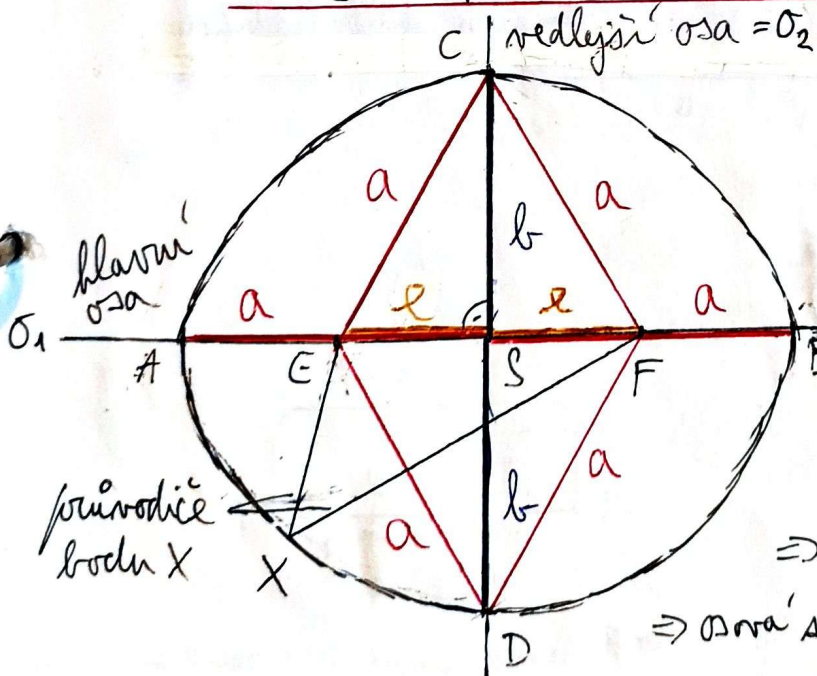 C
vedlejší osa = O₂
a
a
b
hlavní
osa
a
e
e
a
O₁
A
E
S
F
průvodiče
bodu X
a
b
a
X
⇒
⇒ osová
D